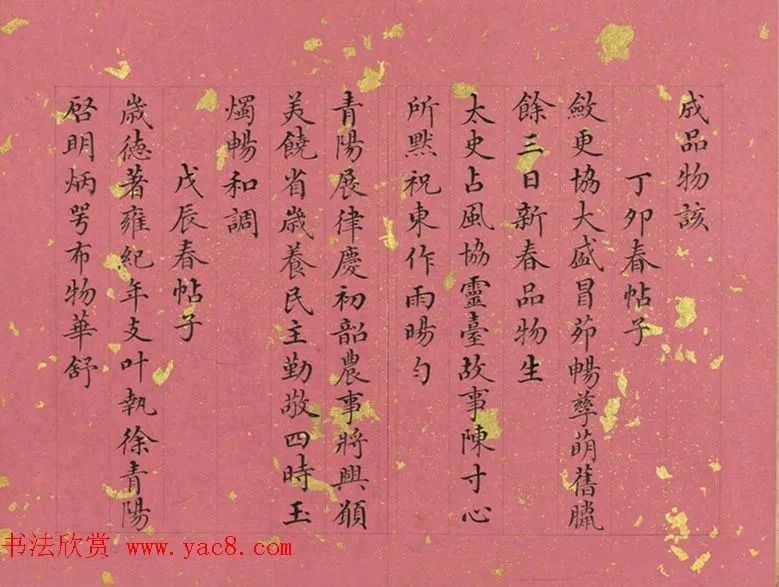 成品物該
丁卯春帖子
斂更協大盛冒茆暢孳萌舊臘
餘三日新春品物生
太史占風協靈臺故事陳寸心
所黙祝東作雨暘勻
青陽展律慶初韶農事將興願
美饒省歲養民主勤敬四時玉
燭暢和調
戊辰春帖子
歲德著雍紀年支叶執徐青陽
啓明炳咢布物華舒
书法欣赏 www.yac8.com